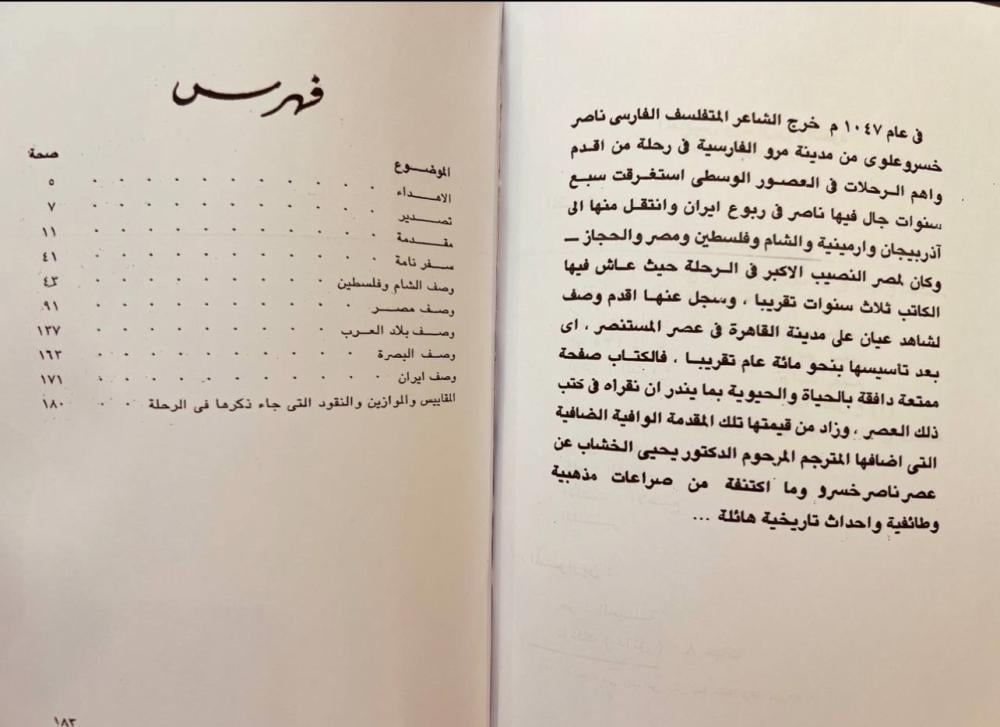 فى عام ١٠٤٧ م خرج الشاعر المتفلسف الفارسى ناصر
خسروعلوى من مدينة مرو الفارسية فى رحلة من اقدم
واهم الرحلات فى العصور الوسطى استغرقت سبع
سنوات جال فيها ناصر فى ربوع ايران وانتقل منها الى
آذربيجان وارمينية والشام وفلسطين ومصر والحجاز ــ
وكان لمصر النصيب الاكبر فى الرحلة حيث عاش فيها
الكاتب ثلاث سنوات تقريبا ، وسجل عنها اقدم وصف
لشاهد عيان على مدينة القاهرة فى عصر المستنصر ، اى
بعد تأسيسها بنحو مائة عام تقريبا ، فالكتاب صفحة
ممتعة دافقة بالحياة والحيوية بما يندر ان نقراه فى كتب
ذلك العصر ، وزاد من قيمتها تلك المقدمة الوافية الضافية
التى اضافها المترجم المرحوم الدكتور يحيى الخشاب عن
عصر ناصر خسرو وما اكتنفة من صراعات مذهبية
وطائفية واحداث تاريخية هائلة ...
فهرس
الموضوع صحة
الاهداء ٥
تصدير ٧
مقدمة ١١
سفر نامة ٤١
وصف الشام وفلسطين ٤٣
وصف مصر ٩١
وصف بلاد العرب ١٣٧
وصف البصرة ١٦٣
وصف ايران ١٧١
المقاييس والموازين والنقود التى جاء ذكرها فى الرحلة ١٨٠
١٨٣